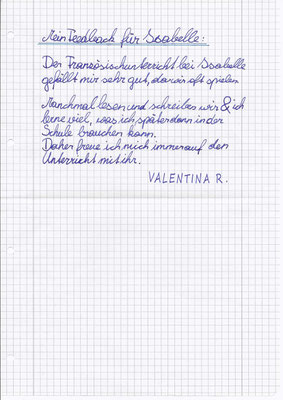 Mein Feedback für Isabelle:
Der Französischunterricht bei Isabelle
gefällt mir sehr gut, da wir oft spielen
Manchmal lesen und schreiben wir & ich
lerne viel, was ich später dann in der
Schule brauchen kann.
Daher freue ich mich immer auf den
Unterricht mit ihr.
VALENTINA R.